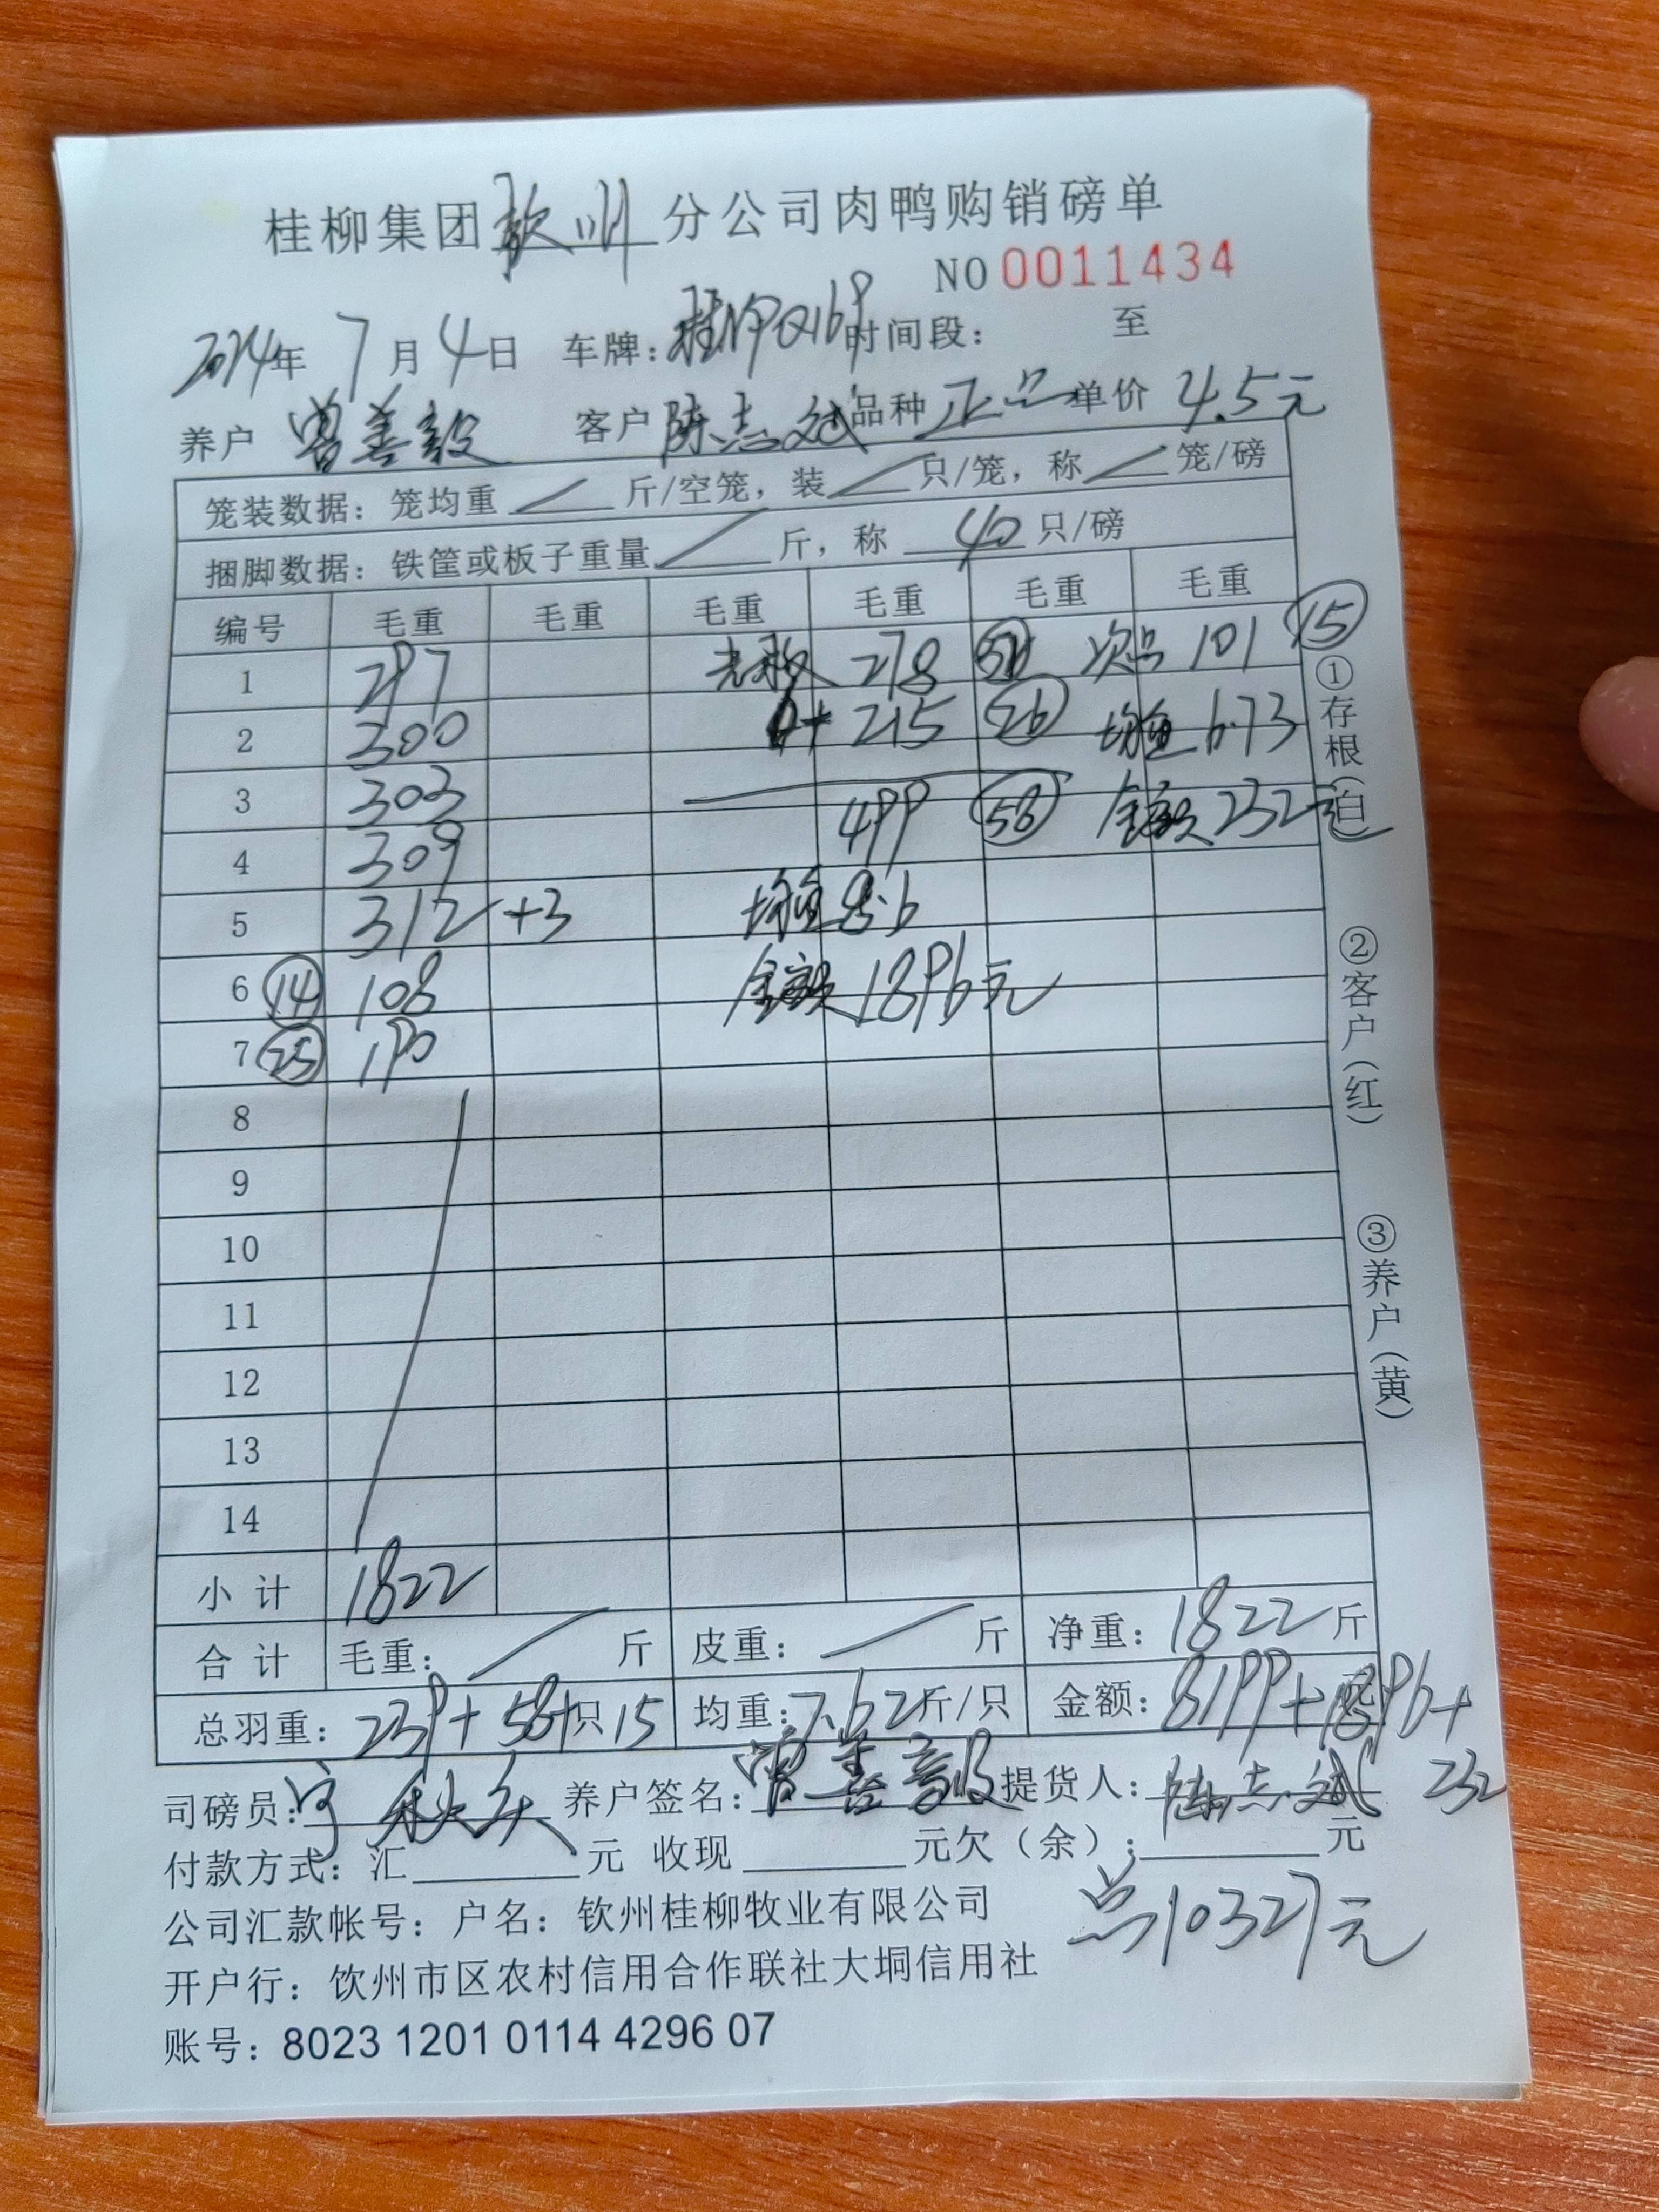 桂柳集团钦州分公司肉鸭购销磅单
NO 0011434
2024年 7月4日 车牌: 时间段: 至
养户 曾善毅 客户 陈志斌 品种 正品 单价 4.5元
笼装数据: 笼均重 / 斤/空笼, 装 / 只/笼, 称 / 笼/磅
捆脚数据: 铁筐或板子重量 / 斤, 称 40 只/磅
编号 毛重 毛重 毛重 毛重 毛重 毛重
1 297 278 次品 101 ⑮
2 300 215 ㉖ 均重 6.73
3 303 499 58 金额 232元
4 309
5 312 +3 均重 8.6
6 ⑭ 108 金额 1896元
7 ㉕ 190
8
9
10
11
12
13
14
小计 1822
合计 毛重: / 斤 皮重: / 斤 净重: 1822斤
总羽重: 239+58+只15 均重: 7.62斤/只 金额: 8199+1896+232
司磅员: 养户签名: 曾善毅 提货人: 陈志斌
付款方式: 汇 元 收现 元欠(余): 元
公司汇款帐号: 户名: 钦州桂柳牧业有限公司
总10327元
开户行: 钦州市区农村信用合作联社大垌信用社
账号: 8023 1201 0114 4296 07
①存根(白) ②客户(红) ③养户(黄)